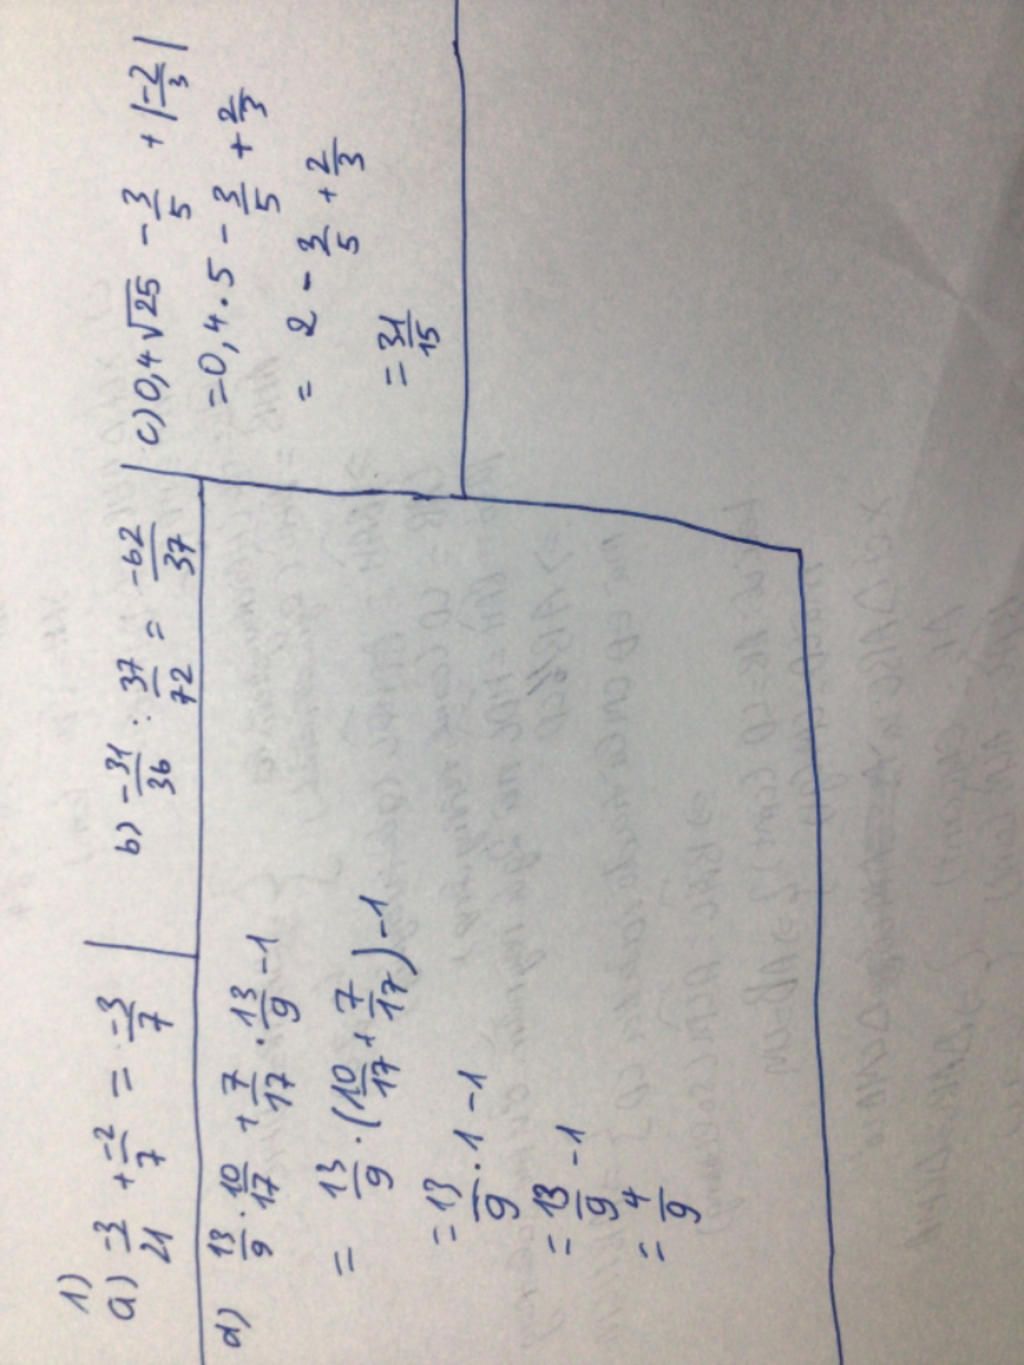 1)
a) -3/21 + -2/7 = -3/7
b) -31/36 : 37/72 = -62/37
c) 0,4√25 - 3/5 + |-2/3|
= 0,4 . 5 - 3/5 + 2/3
= 2 - 3/5 + 2/3
= 31/15
d) 13/9 . 10/17 + 7/17 . 13/9 - 1
= 13/9 . (10/17 + 7/17) - 1
= 13/9 . 1 - 1
= 13/9 - 1
= 4/9